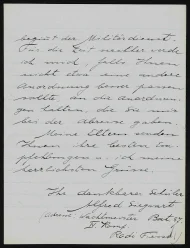 beginnt der Militärdienst.
Für die Zeit nachher werde
ich mich, falls Ihnen
nicht etwa eine andere
Anordnung besser passen
sollte, an die Anordnun-
gen halten, die Sie mir
bei der Abreise gaben.
Meine Eltern senden
Ihnen ihre besten Em-
pfehlungen u. ich meine
herzlichsten Grüsse.
Ihr dankbarer Schüler
Alfred
Bat. 47
II. Komp